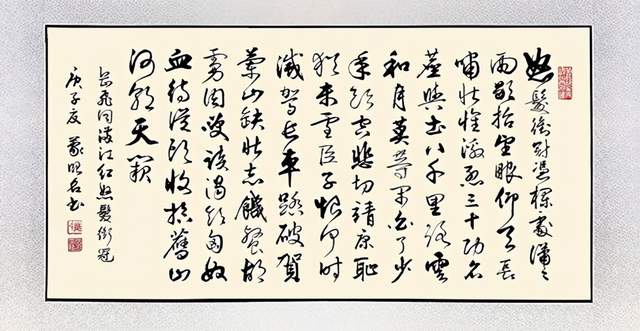 怒髮衝冠憑欄處瀟瀟
雨歇抬望眼仰天長
嘯壯懷激烈三十功名
塵與土八千里路雲
和月莫等閒白了少
年頭空悲切靖康恥
猶未雪臣子恨何時
滅駕長車踏破賀
蘭山缺壯志饑餐胡
虜肉笑談渴飲匈奴
血待從頭收拾舊山
河朝天闕
岳飛詞滿江紅怒髮衝冠
庚子夏書